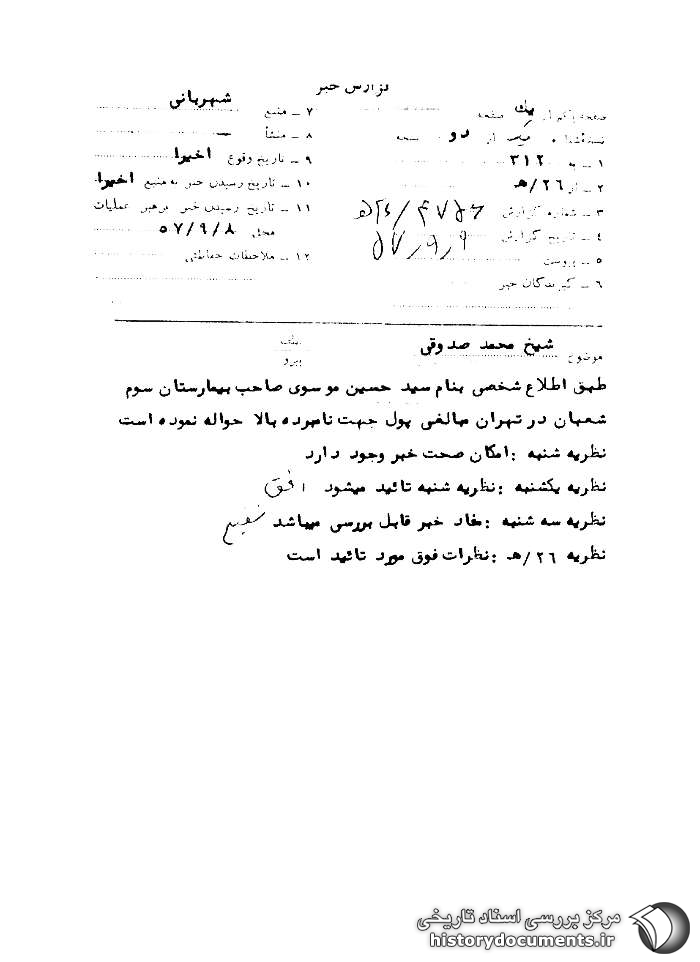 گزارش خبر
صفحه یکم از یك صفحه
نسخه شماره یک از دو نسخه
۱ ـ به ۳۱۲
۲ ـ از ۲۶/هـ
۳ ـ شماره گزارش
۴ ـ تاریخ گزارش ۵۷/۹/۹
۵ ـ پیوست
۶ ـ گیرندگان خبر
۷ ـ منبع شهربانی
۸ ـ منشأ ـ
۹ ـ تاریخ وقوع اخیرا
۱۰ ـ تاریخ رسیدن خبر به منبع اخیرا
۱۱ ـ تاریخ رسیدن خبر برهبر عملیات
محل ۵۷/۹/۸
۱۲ ـ ملاحظات حفاظتی
موضوع شیخ محمد صدوقی
عطف
پیرو
طبق اطلاع شخصی بنام سید حسین موسوی صاحب بیمارستان سوم
شعبان در تهران مبالغی پول جهت نامبرده بالا حواله نموده است
نظریه شنبه : امکان صحت خبر وجود دارد
نظریه یکشنبه : نظریه شنبه تائید میشود افق
نظریه سه شنبه : مفاد خبر قابل بررسی میباشد
نظریه ۲۶/هـ : نظرات فوق مورد تائید است
مرکز بررسی اسناد تاریخی
historydocuments.ir